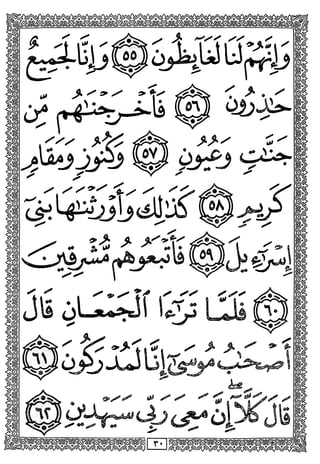 وَإِنَّهُمْ لَنَا لَغَآئِظُونَ ٥٥ وَإِنَّا لَجَمِيعٌ
حَٰذِرُونَ ٥٦ فَأَخْرَجْنَٰهُم مِّن
جَنَّٰتٍ وَعُيُونٍ ٥٧ وَكُنُوزٍ وَمَقَامٍ
كَرِيمٍ ٥٨ كَذَٰلِكَ وَأَوْرَثْنَٰهَا بَنِىٓ
إِسْرَٰٓءِيلَ ٥٩ فَأَتْبَعُوهُم مُّشْرِقِينَ
٦٠ فَلَمَّا تَرَٰٓءَا ٱلْجَمْعَانِ قَالَ
أَصْحَٰبُ مُوسَىٰٓ إِنَّا لَمُدْرَكُونَ ٦١
قَالَ كَلَّآ ۖ إِنَّ مَعِىَ رَبِّى سَيَهْدِينِ ٦٢
٣٠